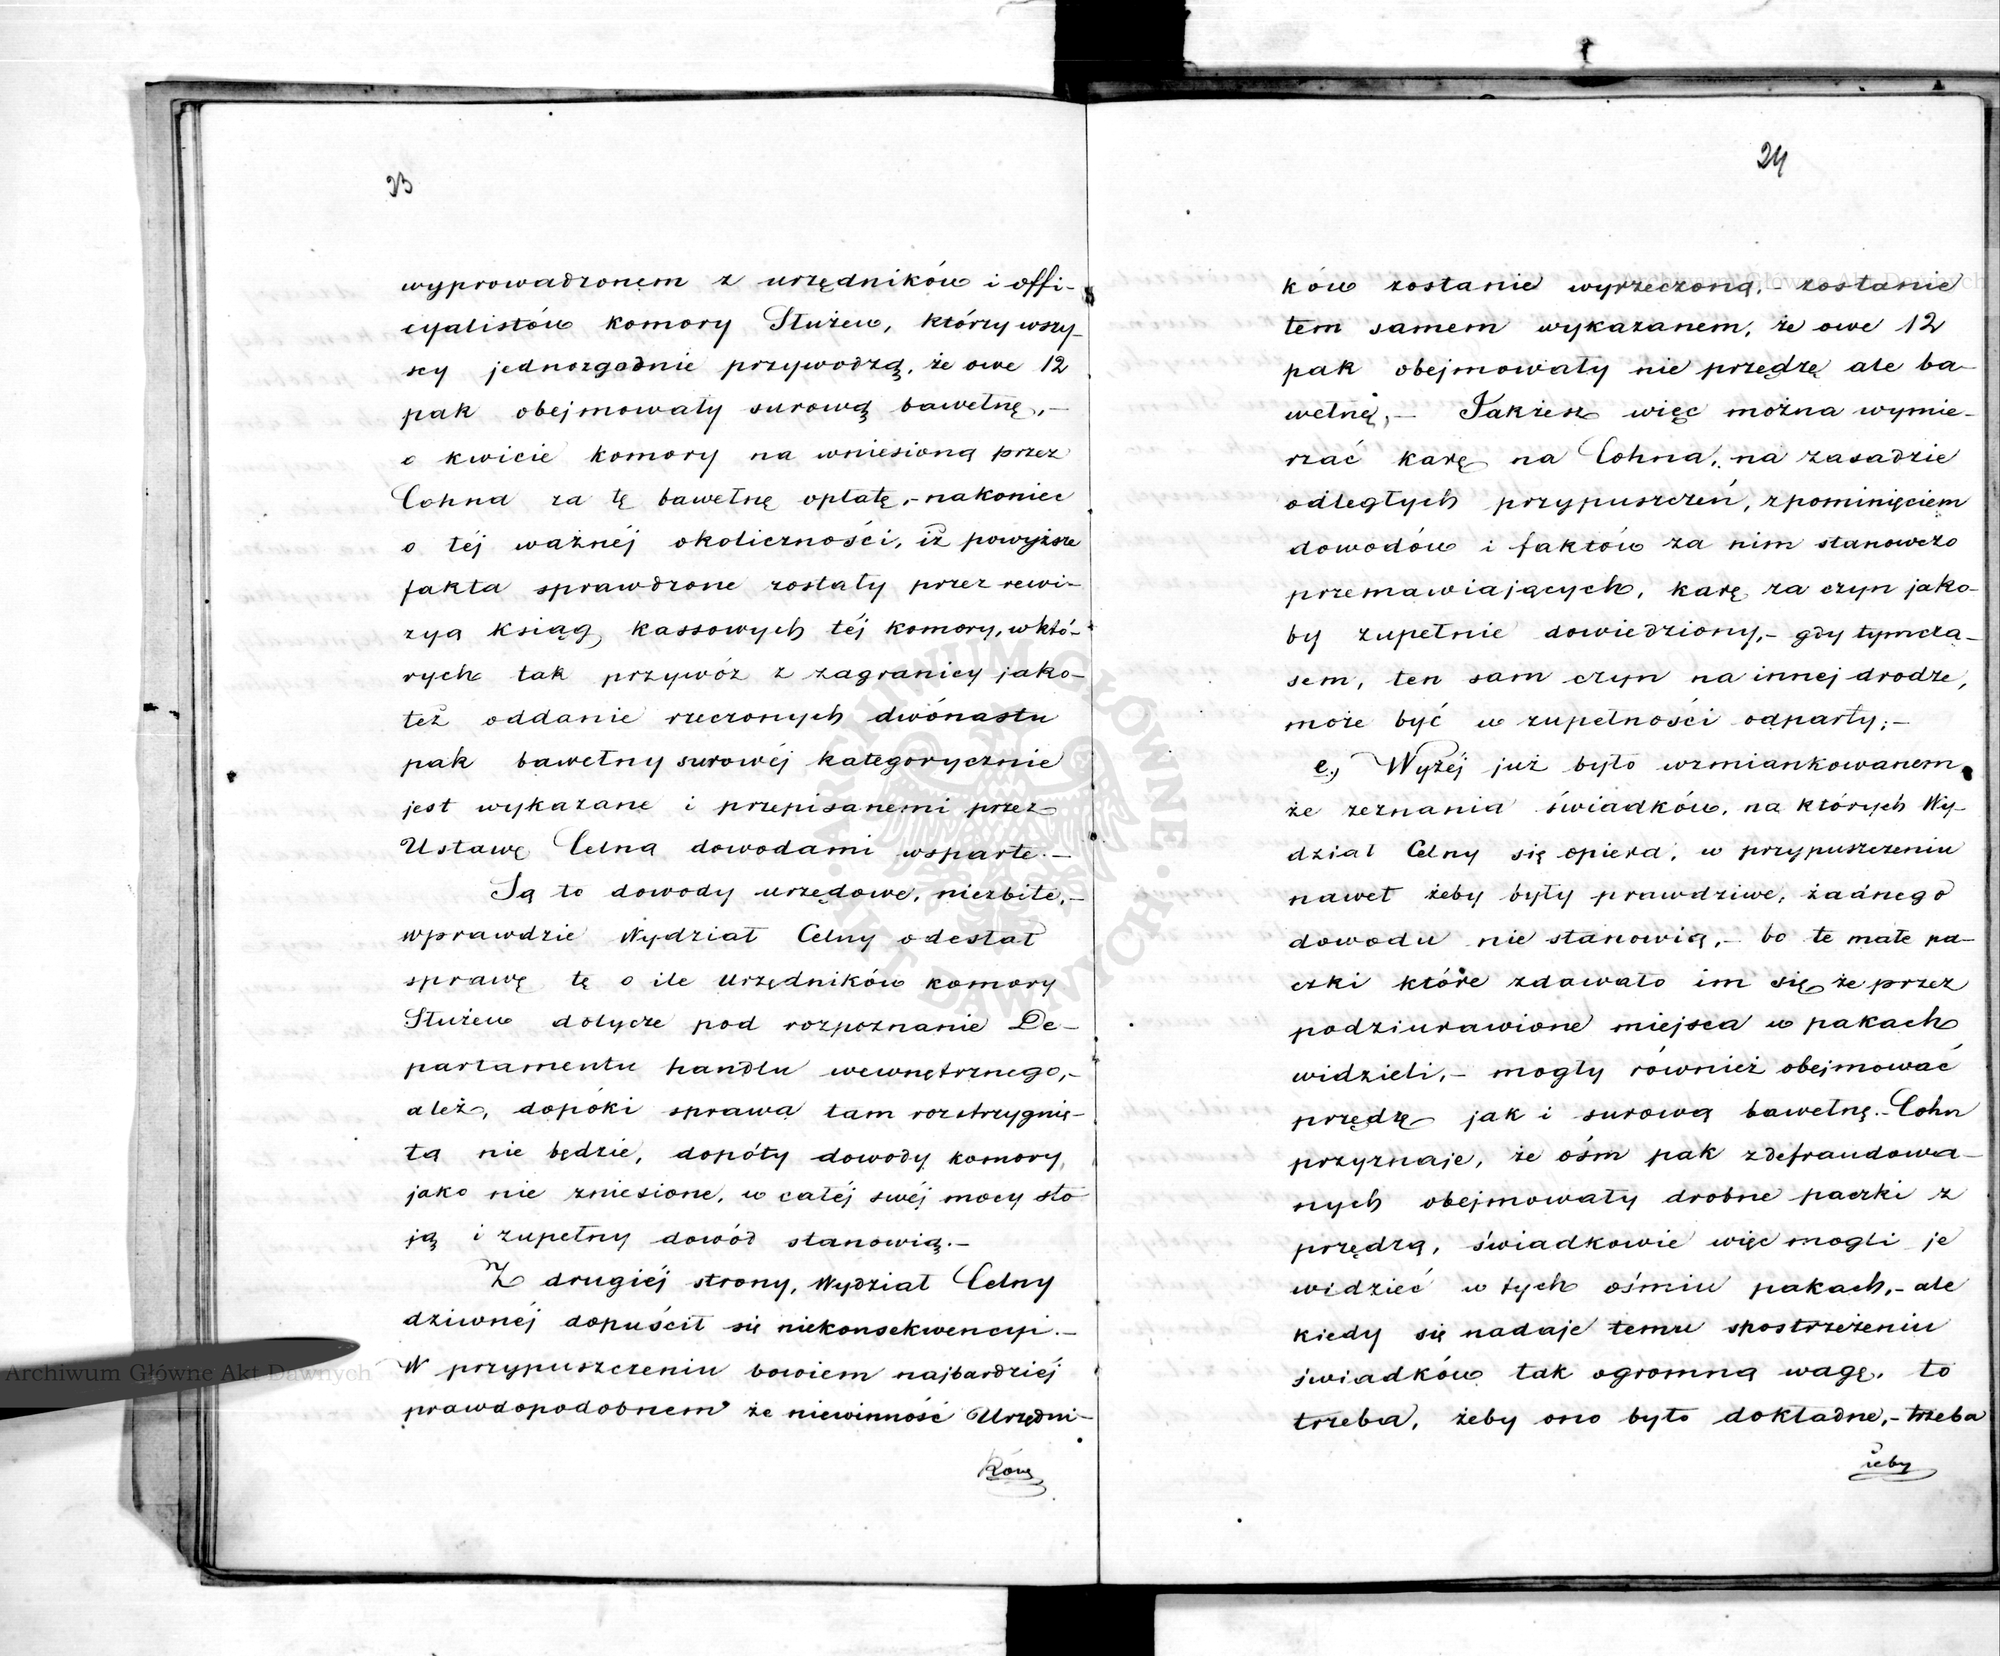 23
wyprowadzonem z urzędników i offi-
cyalistów komory Służew, którzy wszy-
scy jednozgodnie przywodzą, że owe 12
pak obejmowały surową bawełnę,-
o kwicie komory na wniesioną przez
Cohna za tę bawełnę opłatę,- nakoniec
o téj ważnéj okoliczności, iż powyższe
fakta sprawdzone zostały przez rewi-
zyą ksiąg kassowych téj komory, w któ-
rych tak przywóz z zagranicy jako-
też oddanie rzeczonych dwónastu
pak bawełny surowéj kategorycznie
jest wykazane i przepisanemi przez
Ustawę Celną dowodami wsparte.-
Są to dowody urzędowe, niezbite,-
wprawdzie Wydział Celny odesłał
sprawę tę o ile Urzędników komory
Służew dotycze pod rozpoznanie De-
partamentu handlu wewnętrznego,-
ależ, dopóki sprawa tam rozstrzygnię-
tą nie będzie, dopóty dowody komory,
jako nie zniesione, w całéj swéj mocy sto
ją i zupełny dowód stanowią.-
Z drugiéj strony, Wydział Celny
dziwnéj dopuścił się niekonsekwencyi.-
W przypuszczeniu bowiem najbardziéj
prawdopodobnem że niewinność Urzędni-
ków
24
ków zostanie wyrzeczoną, zostanie
tem samem wykazanem, że owe 12
pak obejmowały nie przędzę ale ba-
wełnę,- Jakżesz więc można wymie-
rzać karę na Cohna, na zasadzie
odległych przypuszczeń, z pominięciem
dowodów i faktów za nim stanowczo
przemawiających, karę za czyn jako-
by zupełnie dowiedziony,- gdy tymcza-
sem, ten sam czyn na innej drodze,
może być w zupełności odparty;-
e., Wyżéj już było wzmiankowanem,
że zeznania świadków, na których Wy-
dział Celny się opiera, w przypuszczeniu
nawet żeby były prawdziwe, żadnego
dowodu nie stanowią,- bo te małe pa-
czki które zdawało im się że przez
podziurawione miejsca w pakach
widzieli,- mogły również obejmować
przędzę jak i surową bawełnę.- Cohn
przyznaje, że ośm pak zdefraudowa-
nych obejmowały drobne paczki z
przędzą, świadkowie więc mogli je
widzieć w tych ośmiu pakach,- ale
kiedy się nadaje temu spostrzeżeniu
świadków tak ogromną wagę, to
trzeba, żeby ono było dokładne,- trzeba
żeby
Archiwum Główne Akt Dawnych
Archiwum Główne Akt Dawnych
ARCHIWUM GŁÓWNE AKT DAWNYCH